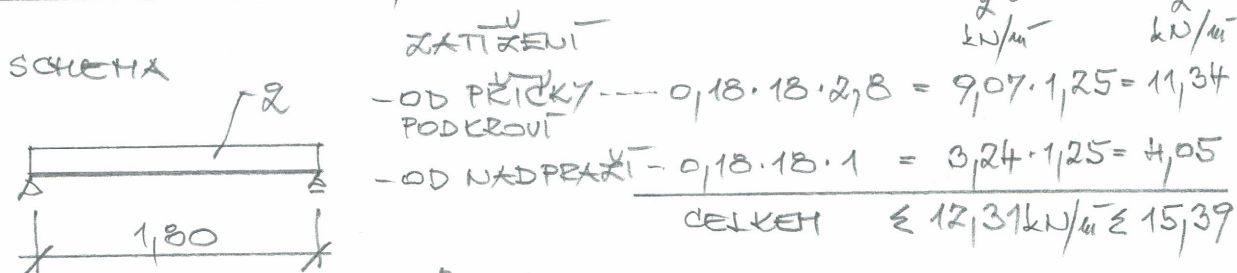 SCHEMA
2
1,80
ZATÍŽENÍ
kN/m kN/m
- OD PŘÍČKY ---- 0,18 · 18 · 2,8 = 9,07 · 1,25 = 11,34
PODKROVÍ
- OD NADPRAŽÍ - 0,18 · 18 · 1 = 3,24 · 1,25 = 4,05
CELKEM Σ 12,31 kN/m Σ 15,39